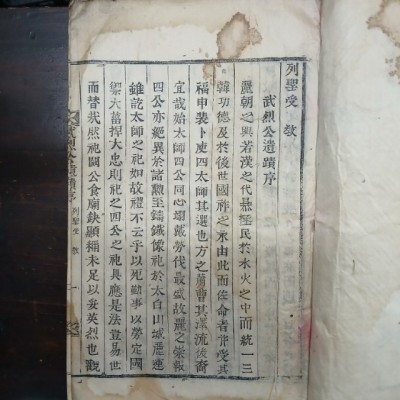 列聖受教
武烈公遺蹟序
麗朝之興若漢之代暴拯民於水火之中而統一三
韓功德及於後世國祚之永由此而佐命者受其
福申裴卜庾四太師其選也方之蕭曹其源流裔
宜哉始太師四公同心翊戴勞代最盛故麗之崇報
四公亦絶異於諸勳至鑄鐵像祀於太白山城麗運
雖訖太師之祀如故禮不云乎以死勤事以勞定國
禦大菑捍大患則祀之四公之祀具應是法豈易世
而替哉然祀闕公食廟缺顯稱未足以妥英烈也觀
武烈公遺蹟序 列聖受教 一